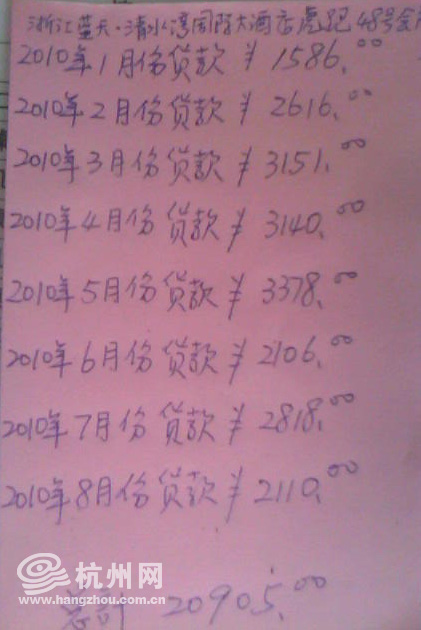 浙江蓝天·清水湾国际大酒店虎跑48号
2010年1月份货款 ¥ 1586.00
2010年2月份货款 ¥ 2616.00
2010年3月份货款 ¥ 3151.00
2010年4月份货款 ¥ 3140.00
2010年5月份货款 ¥ 3378.00
2010年6月份货款 ¥ 2106.00
2010年7月份货款 ¥ 2818.00
2010年8月份货款 ¥ 2110.00
总计 20905.00
杭州网
www.hangzhou.com.cn